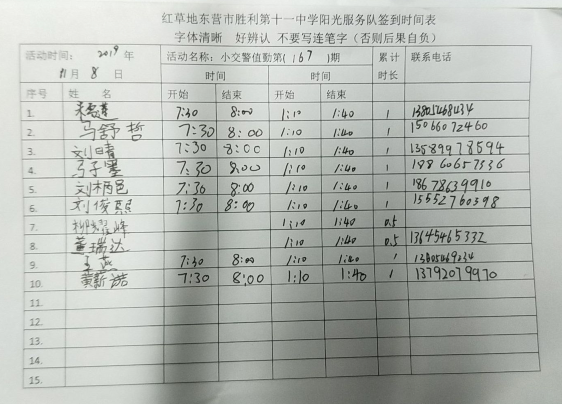 红草地东营市胜利第十一中学阳光服务队签到时间表
字体清晰 好辨认 不要写连笔字（否则后果自负）
活动时间： 2019 年 活动名称：小交警值勤第（167）期 累计 联系电话
11月 8 日 时间 时间 时长
序号 姓 名 开始 结束 开始 结束
1. 7:30 8:00 1:10 1:40 1
2. 马舒哲 7:30 8:00 1:10 1:40 1 15066072460
3. 刘日晴 7:30 8:00 1:10 1:40 1 13589978594
4. 马子墨 7:30 8:00 1:10 1:40 1 18860657336
5. 刘柄邑 7:30 8:00 1:10 1:40 1 18678639910
6. 刘俊熙 7:30 8:00 1:10 1:40 1 15552760398
7. 1:10 1:40 0.5
8. 董瑞达 1:10 1:40 0.5 13645465332
9. 王燕 7:30 8:00 1:10 1:40 1
10. 黄新浩 7:30 8:00 1:10 1:40 1 13792079970
11.
12.
13.
14.
15.